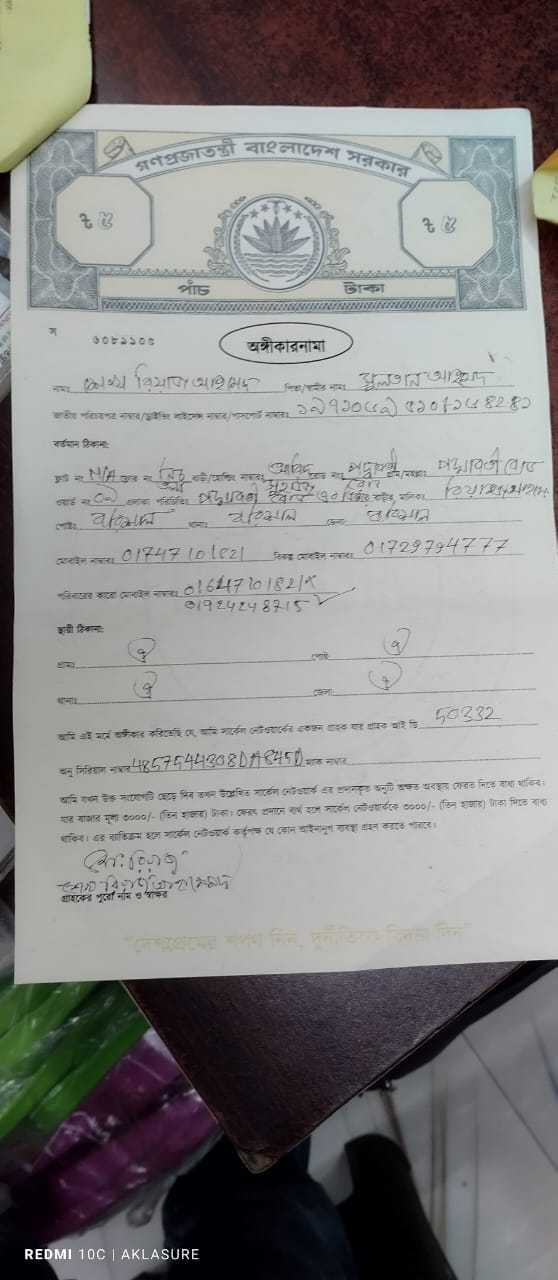 গণপ্রজাতন্ত্রী বাংলাদেশ সরকার
৳ ৫ ৳ ৫
পাঁচ টাকা
অঙ্গীকারনামা
নামঃ রিয়াজ আহমেদ পিতা/স্বামীর নামঃ সুলতান আহমেদ
জাতীয় পরিচয়পত্র নাম্বার/ড্রাইভিং লাইসেন্স নাম্বার/পাসপোর্ট নাম্বারঃ
বর্তমান ঠিকানা:
ফ্লাট নং N/A ফ্লোর নং বাড়ী/হোল্ডিং নাম্বারঃ
ওয়ার্ড নং ০৯ এলাকা পরিচিতিঃ
পোষ্টঃ বরিশাল থানাঃ বরিশাল জেলাঃ বরিশাল
মোবাইল নাম্বারঃ 01747101821 বিকল্প মোবাইল নাম্বারঃ 01729794777
পরিবারের কারো মোবাইল নাম্বারঃ
01924248715
স্থায়ী ঠিকানা:
গ্রামঃ ঐ পোষ্টঃ ঐ
থানাঃ ঐ জেলাঃ ঐ
আমি এই মর্মে অঙ্গীকার করিতেছি যে, আমি সার্কেল নেটওয়ার্কের একজন গ্রাহক যার গ্রাহক আই ডি 50332
অনু সিরিয়াল নাম্বার 48575443081DA845D ম্যাক নাম্বার
আমি যখন উক্ত সংযোগটি ছেড়ে দিব তখন উল্লেখিত সার্কেল নেটওয়ার্ক এর প্রদানকৃত অনুটি অক্ষত অবস্থায় ফেরত দিতে বাধ্য থাকিব।
যার বাজার মূল্য ৩০০০/- (তিন হাজার) টাকা। ফেরৎ প্রদানে ব্যর্থ হলে সার্কেল নেটওয়ার্ককে ৩০০০/- (তিন হাজার) টাকা দিতে বাধ্য
থাকিব। এর ব্যতিক্রম হলে সার্কেল নেটওয়ার্ক কর্তৃপক্ষ যে কোন আইনানুগ ব্যবস্থা গ্রহন করতে পারবে।
গ্রাহকের পুরো নাম ও স্বাক্ষর
"দেশপ্রেমের শপথ নিন, দুর্নীতিকে বিদায় দিন"
REDMI 10C | AKLASURE